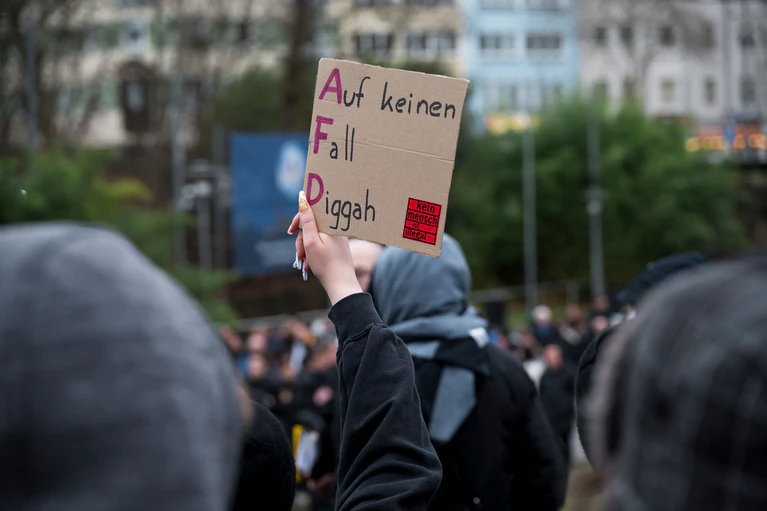 Auf keinen
Fall
Diggah
kein
mensch
ist
illegal